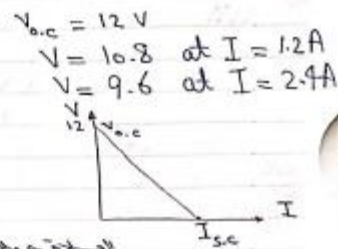 V₀.c = 12 V
V = 10.8 at I = 1.2A
V = 9.6 at I = 2.4A
V
12 V₀.c
I
I s.c